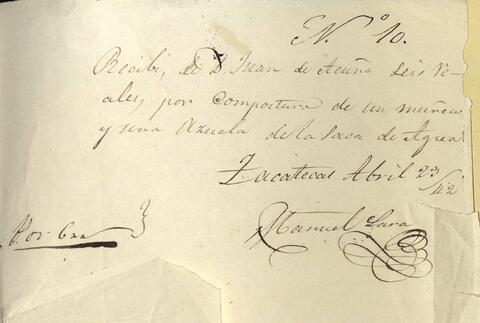 N.º 10.
Recibi, de D. Juan de Acuña seis Re-
ales, por compostura de un muñeco
y una Azuela de la Saca de Agua
Zacatecas Abril 23/42
Manuel Lara
P.or 6 rr.